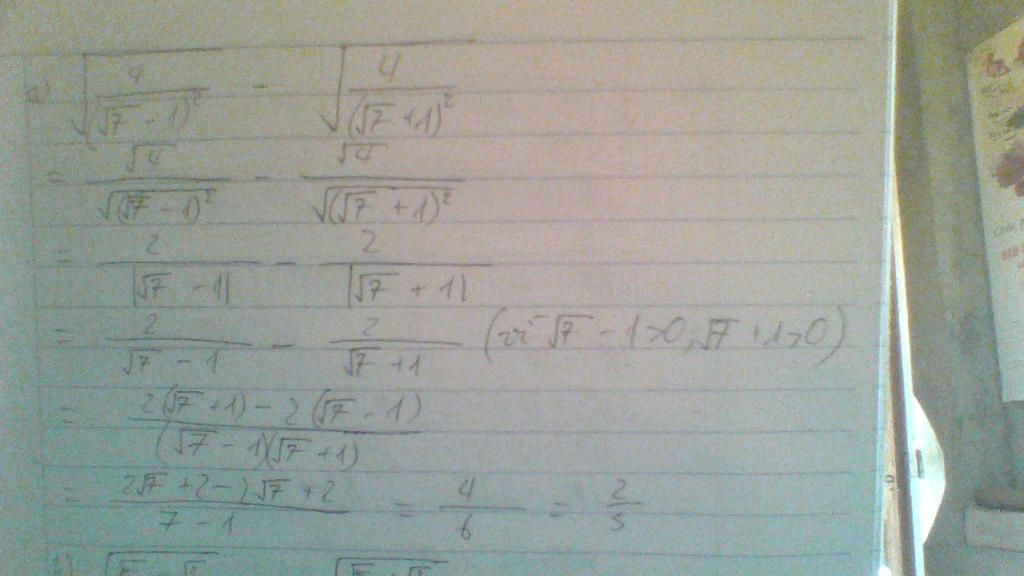 a) √(4/(√7 - 1)²) - √(4/(√7 + 1)²)
= √4/√(√7 - 1)² - √4/√(√7 + 1)²
= 2/|√7 - 1| - 2/|√7 + 1|
= 2/(√7 - 1) - 2/(√7 + 1) (vì √7 - 1 > 0, √7 + 1 > 0)
= (2(√7 + 1) - 2(√7 - 1))/((√7 - 1)(√7 + 1))
= (2√7 + 2 - 2√7 + 2)/(7 - 1) = 4/6 = 2/3
b)